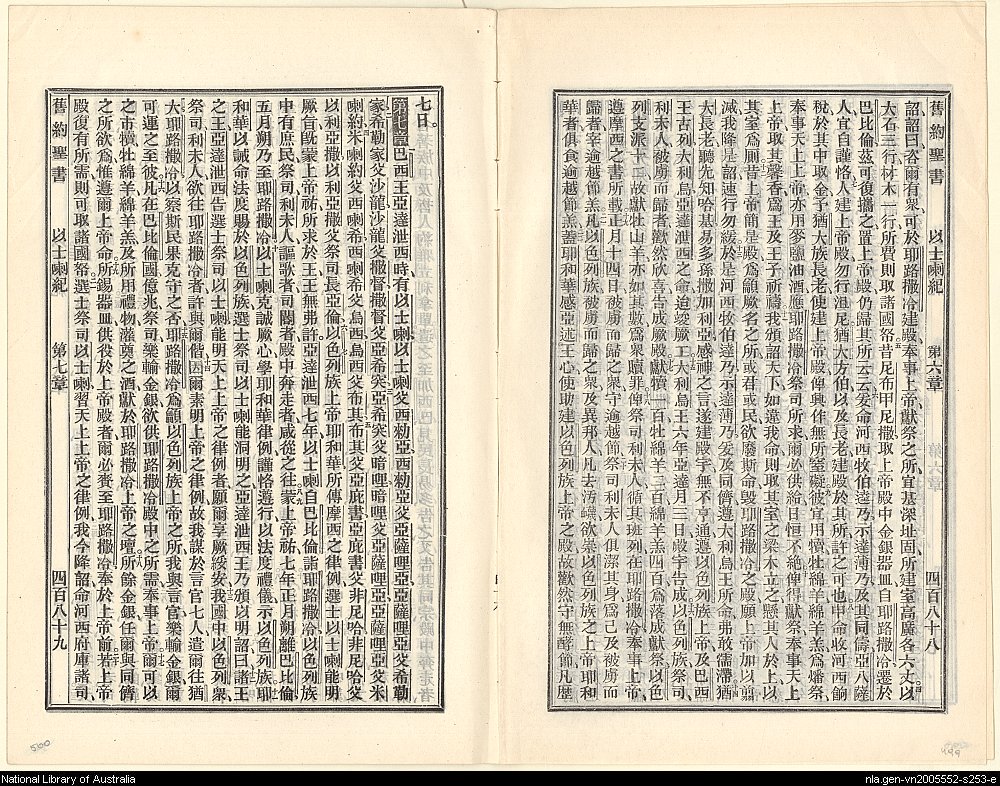 舊約聖書 以士喇紀 第六章 四百八十八
詔詔曰咨爾有衆可於耶路撒冷建殿奉事上帝獻祭之所宜基深址固所建室高廣各六丈以
大石三行材木一行所費則取諸國帑昔尼布甲尼撒取上帝殿中金銀器皿自耶路撒冷遷於
巴比倫茲可復攜之置上帝殿仍歸其所云云爰命河西牧伯達乃示達薄乃及其同儔亞八薩
人宜自謹恪人建上帝殿勿行沮尼猶大方伯以及長老建殿於其所許之可也申命收河西餉
稅於其中取金予猶大族長老使建上帝殿俾興作無所窒礙彼宜用犢牡綿羊綿羊羔爲燔祭
奉事天上上帝亦用麥鹽油酒應耶路撒冷祭司所求爾必供給日恒不絕俾得獻祭奉事天上
上帝取其馨香爲王及王子祈禱我頒詔天下如違我命則取其室之梁木立之懸其人於上以
其室爲厠昔上帝簡是殿爲籲厥名之所或君或民欲廢斯命毀耶路撒冷之殿願上帝加以翦
滅我降是詔速行勿緩於是河西牧伯達乃示達薄乃爰及同儔遵大利烏王所命弗敢濡滯猶
大長老聽先知哈基易多孫撒加利亞感神之言遂建殿宇無不亨通遵以色列族上帝及巴西
王古列大利烏亞達泄西之命迨竣厥工大利烏王六年亞達月三日殿宇告成以色列族祭司
利未人被虜而歸者歡然欣喜告成厥殿獻犢一百牡綿羊二百綿羊羔四百爲落成獻祭以色
列支派十二故獻牡山羊亦如其數爲衆贖罪俾祭司利未人循其班列在耶路撒冷奉事上帝
遵摩西之書所載正月十四日被虜而歸之衆守逾越節祭司利未人俱潔其身爲己及被虜而
歸者宰逾越節羔凡以色列族被虜而歸之衆及異邦人凡去汚衊欲崇以色列族之上帝耶和
華者俱食逾越節羔蓋耶和華感亞述王心使助建以色列族上帝之殿故歡然守無酵節凡歷
七日
第七章 巴西王亞達泄西時有以士喇以士喇父西勑亞西勑亞父亞薩哩亞亞薩哩亞父希勒
家希勒家父沙龍沙龍父撒督撒督父亞希突亞希突父暗哩暗哩父亞薩哩亞亞薩哩亞父米
喇約米喇約父西喇希西喇希父烏西烏西父布其布其父亞庇書亞庇書父非尼哈非尼哈父
以利亞撒以利亞撒父祭司長亞倫以色列族上帝耶和華所傳摩西之律例選士以士喇能明
厥旨旣蒙上帝祐所求於王王無弗許亞達泄西七年以士喇自巴比倫詣耶路撒冷以色列族
中有庶民祭司利未人謳歌者司閽者殿中奔走者咸從之往蒙上帝祐七年正月朔離巴比倫
五月朔乃至耶路撒冷以士喇克誠厥心學耶和華律例謹恪遵行以法度禮儀示以色列族耶
和華以誡命法度賜於以色列族選士祭司以士喇能洞明之亞達泄西王乃頒以明詔曰諸王
之王亞達泄西告選士祭司以士喇能明天上上帝之律例者願爾享厥綏安我國中以色列衆
祭司利未人欲往耶路撒冷者許與爾偕因爾素明上帝之律例故我謀於言官七人遣爾往猶
大耶路撒冷以察斯民果克守之否耶路撒冷爲籲以色列族上帝之所我與言官樂輸金銀爾
可運之至彼凡在巴比倫國億兆祭司樂輸金銀欲供耶路撒冷殿中之所需奉事上帝爾可以
之市犢牡綿羊綿羊羔及所用禮物灌奠之酒獻於耶路撒冷上帝之壇所餘金銀任爾與同儕
之所欲爲惟遵爾上帝命所錫器皿供役於上帝殿者爾必賫至耶路撒冷奉於上帝前若上帝
殿復有所需則可取諸國帑選士祭司以士喇習天上上帝之律例我今降詔命河西府庫諸司
舊約聖書 以士喇紀 第七章 四百八十九
500
499
National Library of Australia
nla.gen-vn2005552-s253-e